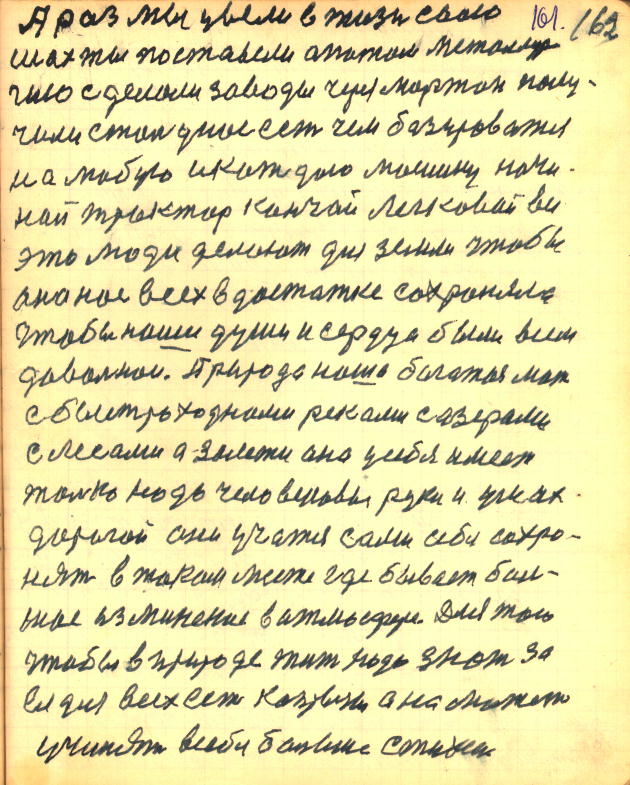 А раз мы цвели в жизи свою 161. 162
шахты поставели а потом металлур
гию сделоли заводы чуя мартэн полу-
чили стал уное сет чем базироватя
на любую и каждою машину начи-
ная трактор канчая легковой ви
это люди делоют для земли чтобы
ана нас всех в достатке сохроняла
чтобы наши душы и сердца были всем
даволнои. Природа наша богатая мат
с быстроходноми реками с азерами
с лесами а залежи ана у себя имеет
толко надо человеговы руки и ум как
дорогой они учатя сами себя сохро-
нят в таком месте где бывает бол-
шое изминение в атмосфере Для того
чтобы в природе жит надо знат за
ея для всех сет ана может
учинят в себя болшие стихеи